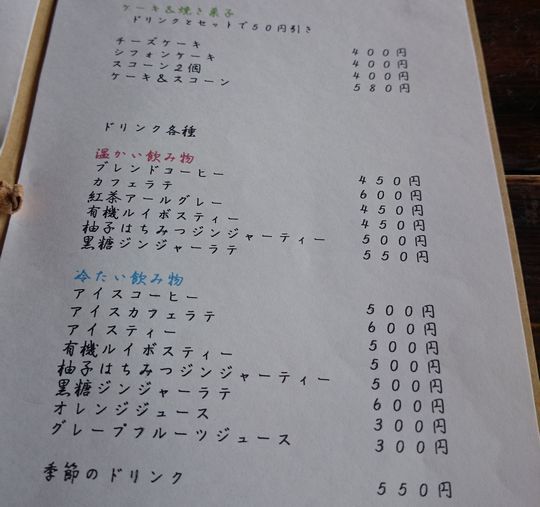 ケーキ&焼き菓子
ドリンクとセットで50円引き
チーズケーキ 400円
シフォンケーキ 400円
スコーン2個 400円
ケーキ&スコーン 580円
ドリンク各種
温かい飲み物
ブレンドコーヒー 450円
カフェラテ 600円
紅茶アールグレー 450円
有機ルイボスティー 450円
柚子はちみつジンジャーティー 500円
黒糖ジンジャーラテ 550円
冷たい飲み物
アイスコーヒー 500円
アイスカフェラテ 600円
アイスティー 500円
有機ルイボスティー 500円
柚子はちみつジンジャーティー 500円
黒糖ジンジャーラテ 600円
オレンジジュース 300円
グレープフルーツジュース 300円
季節のドリンク 550円